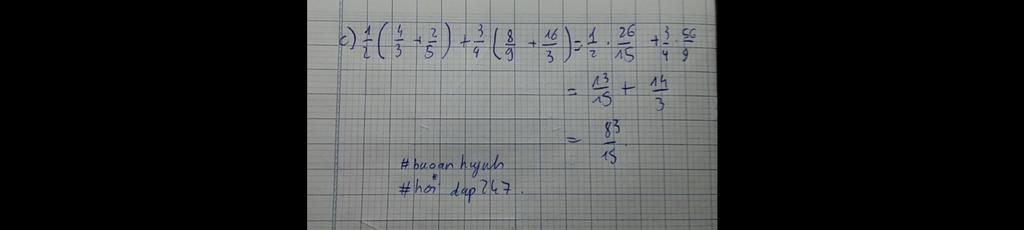 c) 1/2 ( 4/3 + 2/5 ) + 3/4 ( 8/9 + 16/3 ) = 1/2 . 26/15 + 3/4 . 56/9
= 13/15 + 14/3
= 83/15 .
#baoanhuynh
#hoi dap247 .